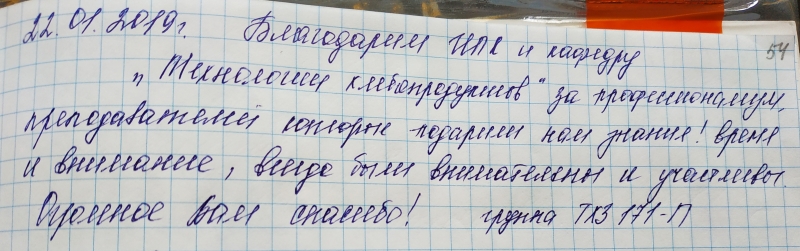 54
22.01.2019г. Благодарим ИПК и кафедру
„Технологии хлебопродуктов" за профессионализм,
преподавателей которые подарили нам знания! время
и внимание, всегда были внимательны и участливы.
Огромное Вам спасибо! группа ТХЗ 171-П